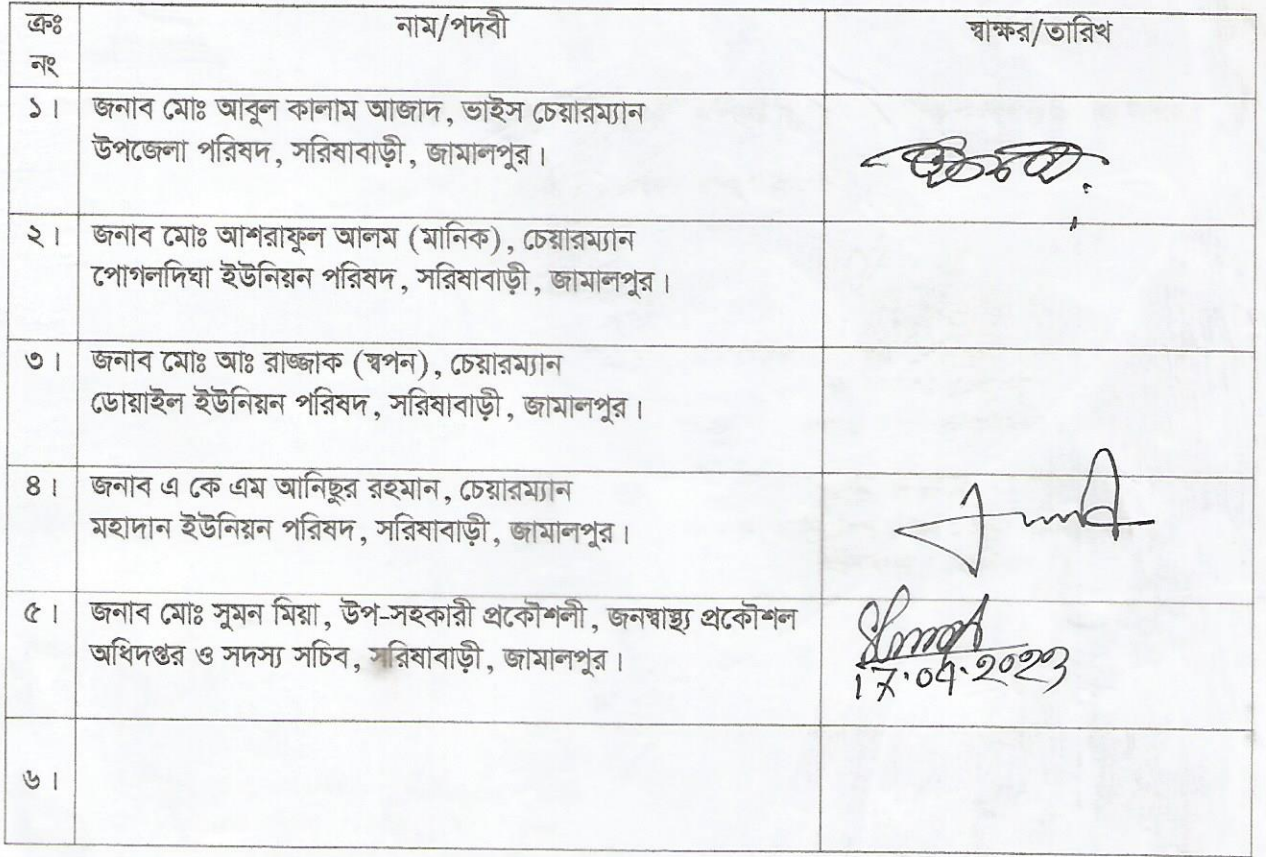 ক্রঃ নং নাম/পদবী স্বাক্ষর/তারিখ
১। জনাব মোঃ আবুল কালাম আজাদ, ভাইস চেয়ারম্যান
উপজেলা পরিষদ, সরিষাবাড়ী, জামালপুর।
২। জনাব মোঃ আশরাফুল আলম (মানিক), চেয়ারম্যান
পোগলদিঘা ইউনিয়ন পরিষদ, সরিষাবাড়ী, জামালপুর।
৩। জনাব মোঃ আঃ রাজ্জাক (স্বপন), চেয়ারম্যান
ডোয়াইল ইউনিয়ন পরিষদ, সরিষাবাড়ী, জামালপুর।
৪। জনাব এ কে এম আনিছুর রহমান, চেয়ারম্যান
মহাদান ইউনিয়ন পরিষদ, সরিষাবাড়ী, জামালপুর।
৫। জনাব মোঃ সুমন মিয়া, উপ-সহকারী প্রকৌশলী, জনস্বাস্থ্য প্রকৌশল
অধিদপ্তর ও সদস্য সচিব, সরিষাবাড়ী, জামালপুর।
17.04.2023
৬।